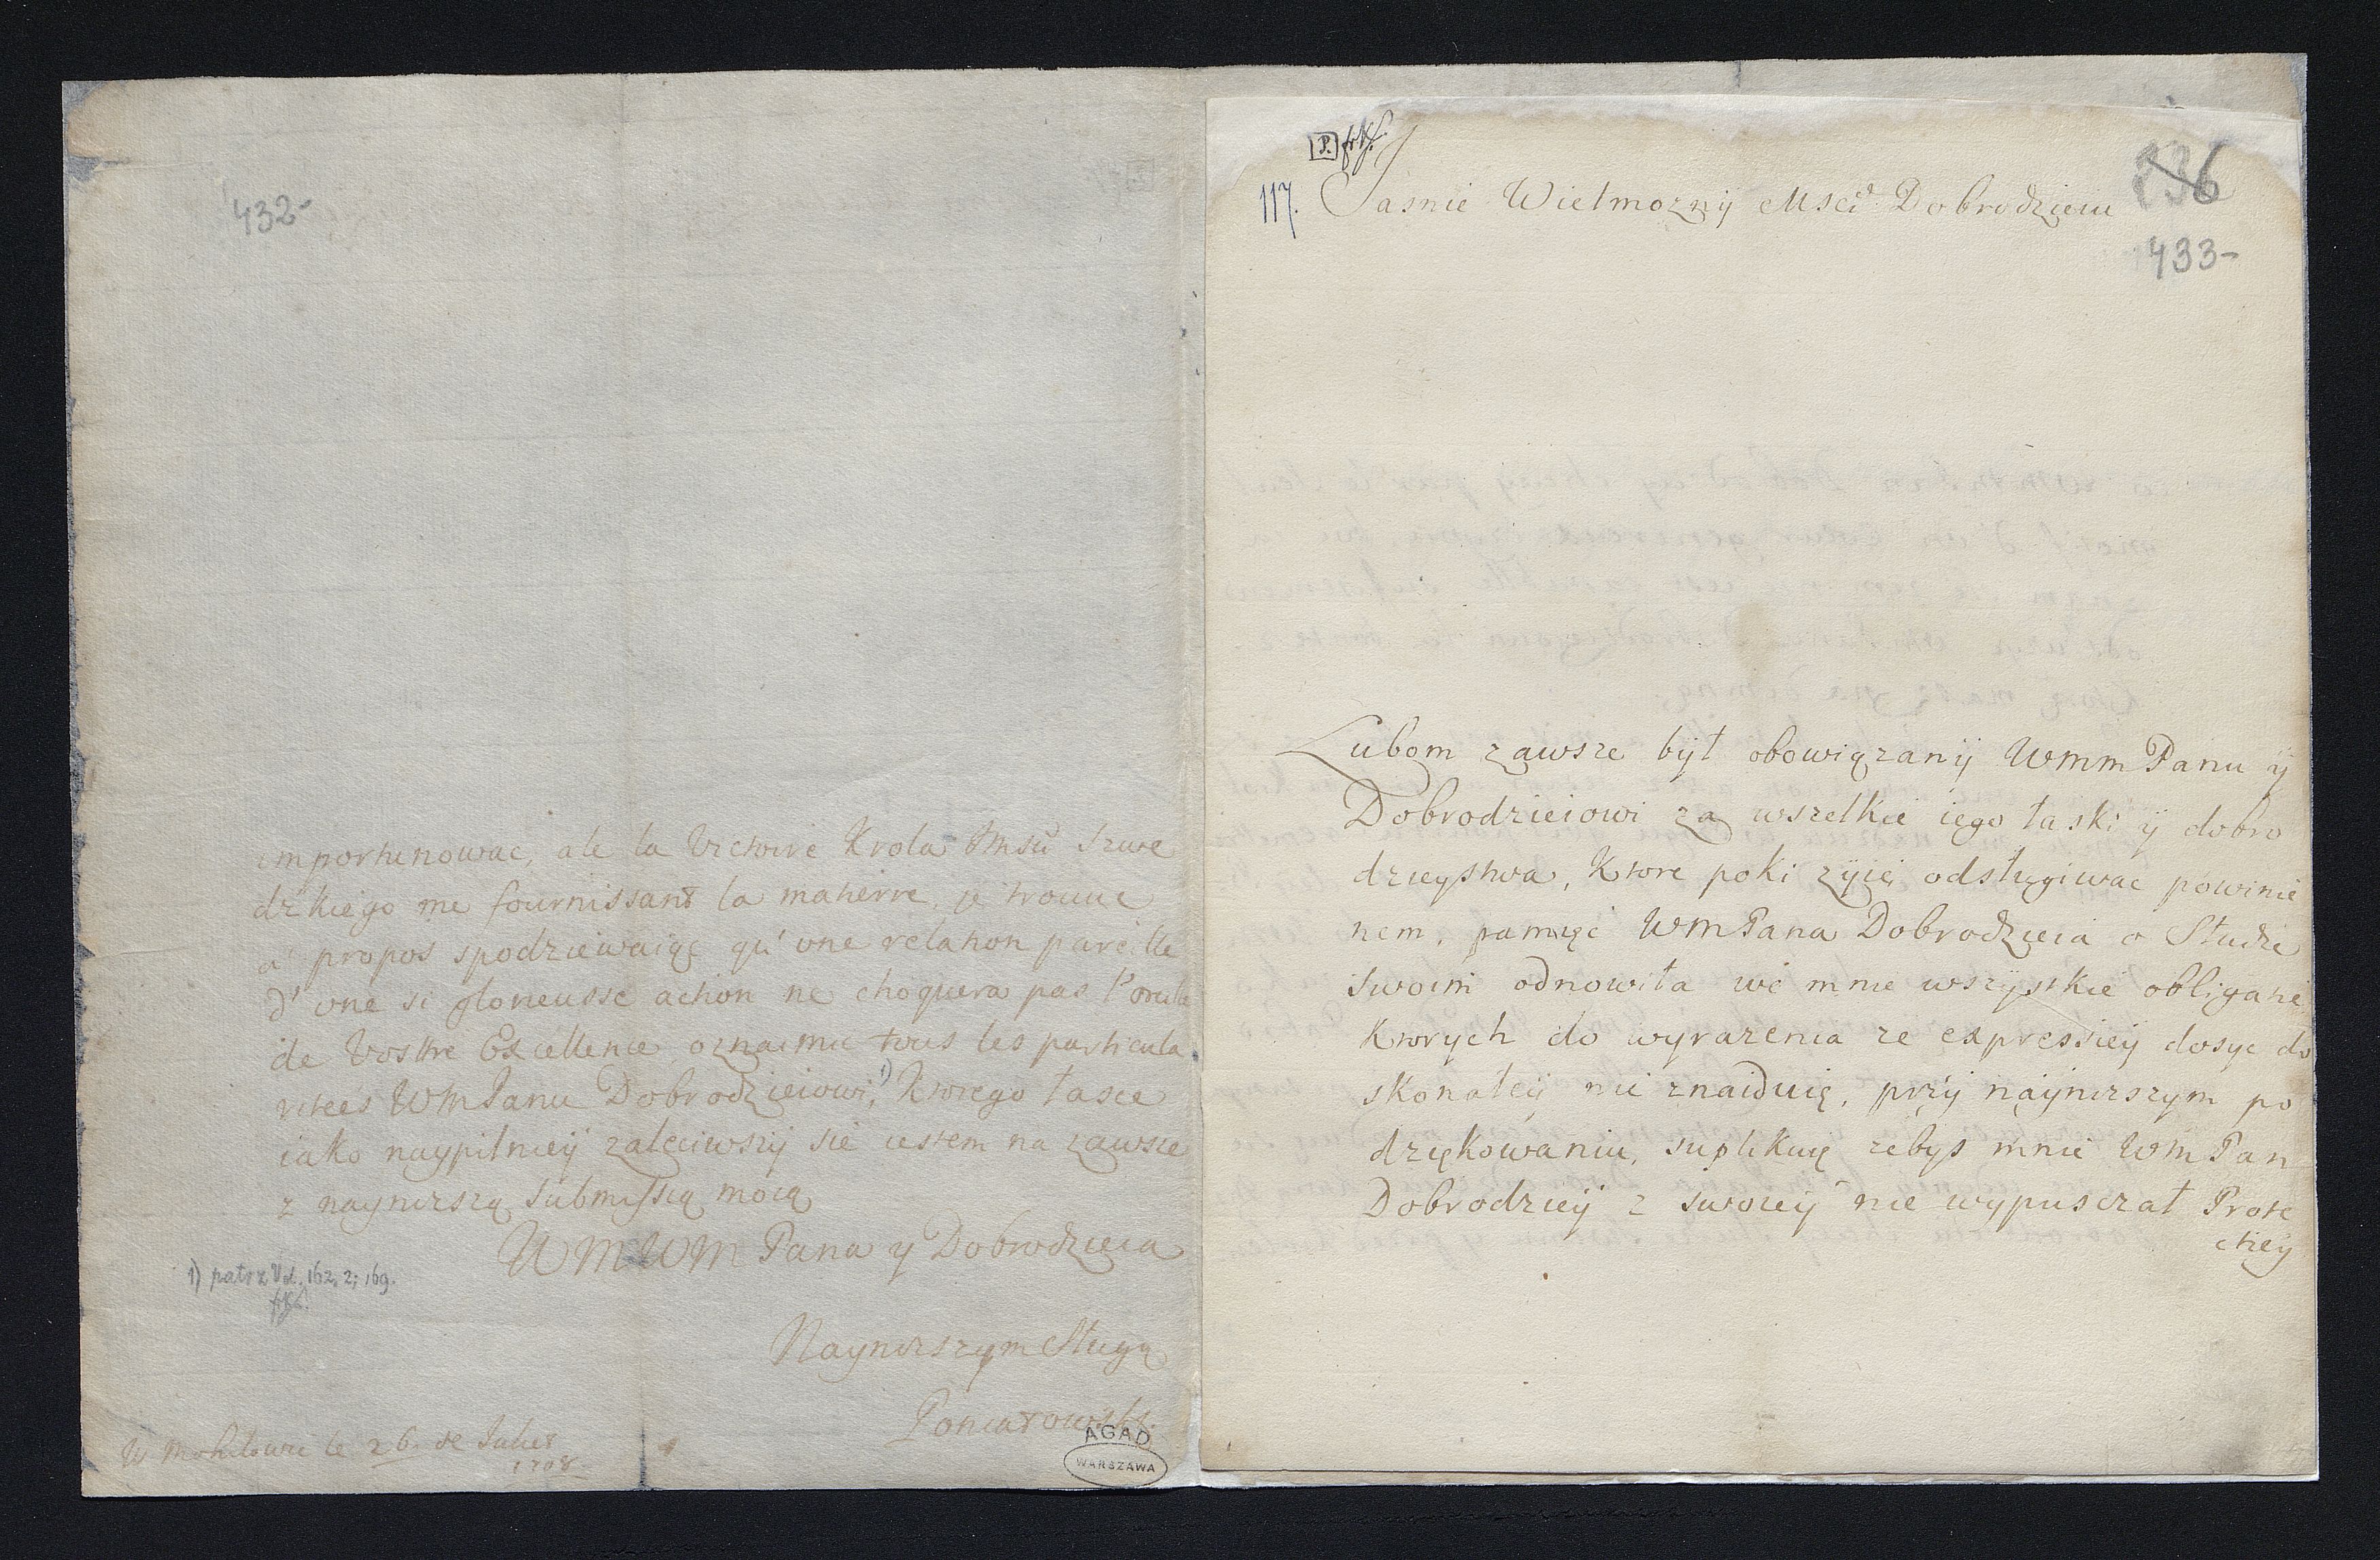 432-
importunowac, ale la Victoire Krola Jmsci Szwe
dzkiego me fournissant la matierre, je trouue
a propos spodziewaiąc qu'une relation pareille
d'une si glorieusse action ne choquera pas l'oreile
de Vostre Excellence oznaimic tous les particula
ritees WMPanu Dobrodzieiowi,1) Ktorego łasce
iako naypilnieÿ zaleciwszÿ sie iestem na zawsze
z naynizszą submissią moią
WMWM Pana y Dobrodzieia
1) patrz Vol. 162, 2; 169.
Naynizszym Sługą
Poniatowski.
W Mohilowie le 26 de Julies
1708
AGAD
WARSZAWA
P.
117. Jasnie Wielmoznÿ Msci Dobrodzieiu
136
433-
Lubom zawsze bÿł obowiązanÿ WmmPanu ÿ
Dobrodzieiowi za wszelkie iego łaski ÿ dobro
dzieystwa, Ktore poki zÿię odsługiwac powinie
nem, pamięc WMPana Dobrodzieia o Słudze
swoim odnowiła we mnie wszÿstkie obligatie
Ktorych do wyrazenia ze expressieÿ dosyc do
skonałeÿ nie znaiduię, przÿ naÿnizszym po
dziękowaniu, suplikuię zebys mnie WMPan
Dobrodzieÿ z swoieÿ nie wypusczał Prote
ctiey